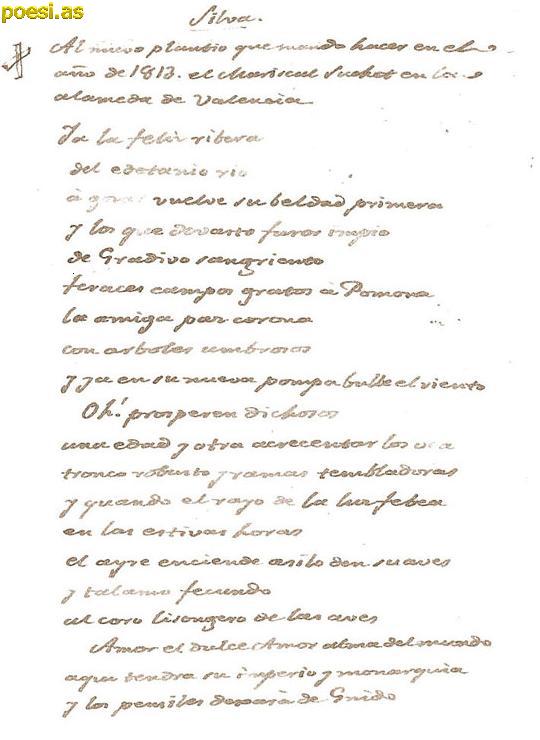 poesi.as
Silva.
Al nuevo plantio que mando hacer en el
año de 1813. el Mariscal Suchet en la
alameda de Valencia
Ya la feliz ribera
del edetanio rio
à gozar vuelve su beldad primera
y los que devasto furor impio
de Gradivo sangriento
feraces campos gratos à Pomona
la amiga paz corona
con arboles umbrosos
y ya en su nueva pompa bulle el viento
Oh! prosperen dichosos
una edad y otra acrecentar los vea
tronco robusto y ramas tembladoras
y quando el rayo de la luz febea
en las estivas horas
el ayre enciende asilo den suaves
y talamo fecundo
al coro lisongero de las aves
Amor el dulce Amor alma del mundo
aqui tendra su imperio y monarquia
y los pensiles dexarà de Gnido